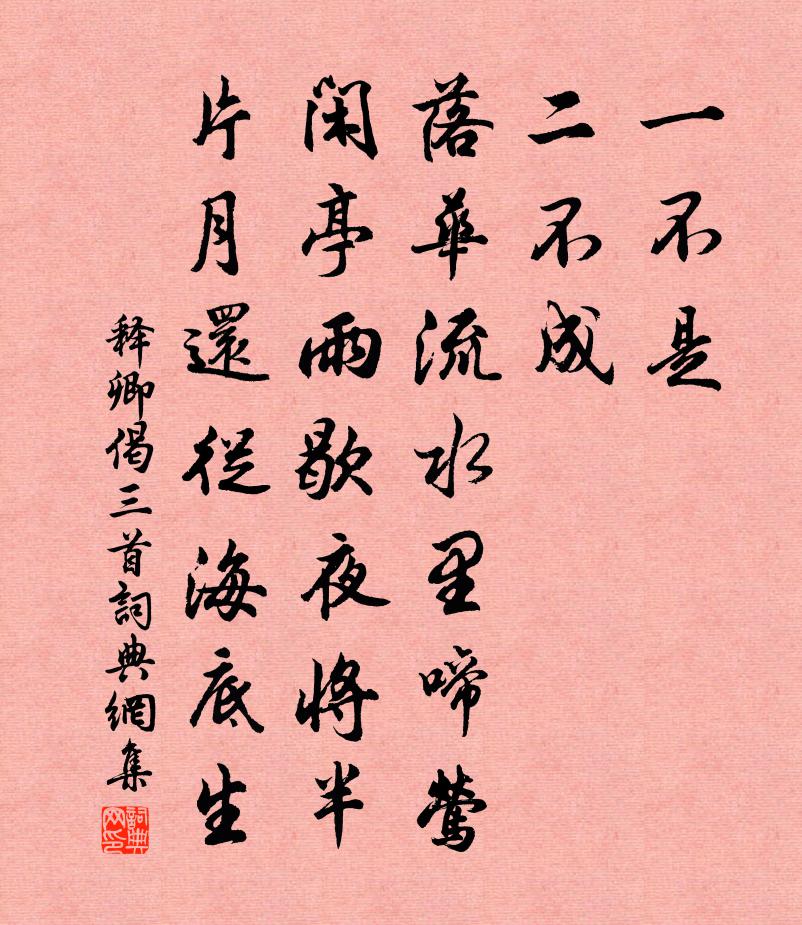 一不是
二不成
落華流水里啼莺
闲亭雨歇夜将半
片月還從海底生
释卿偈三首詞典網集
詞典网印